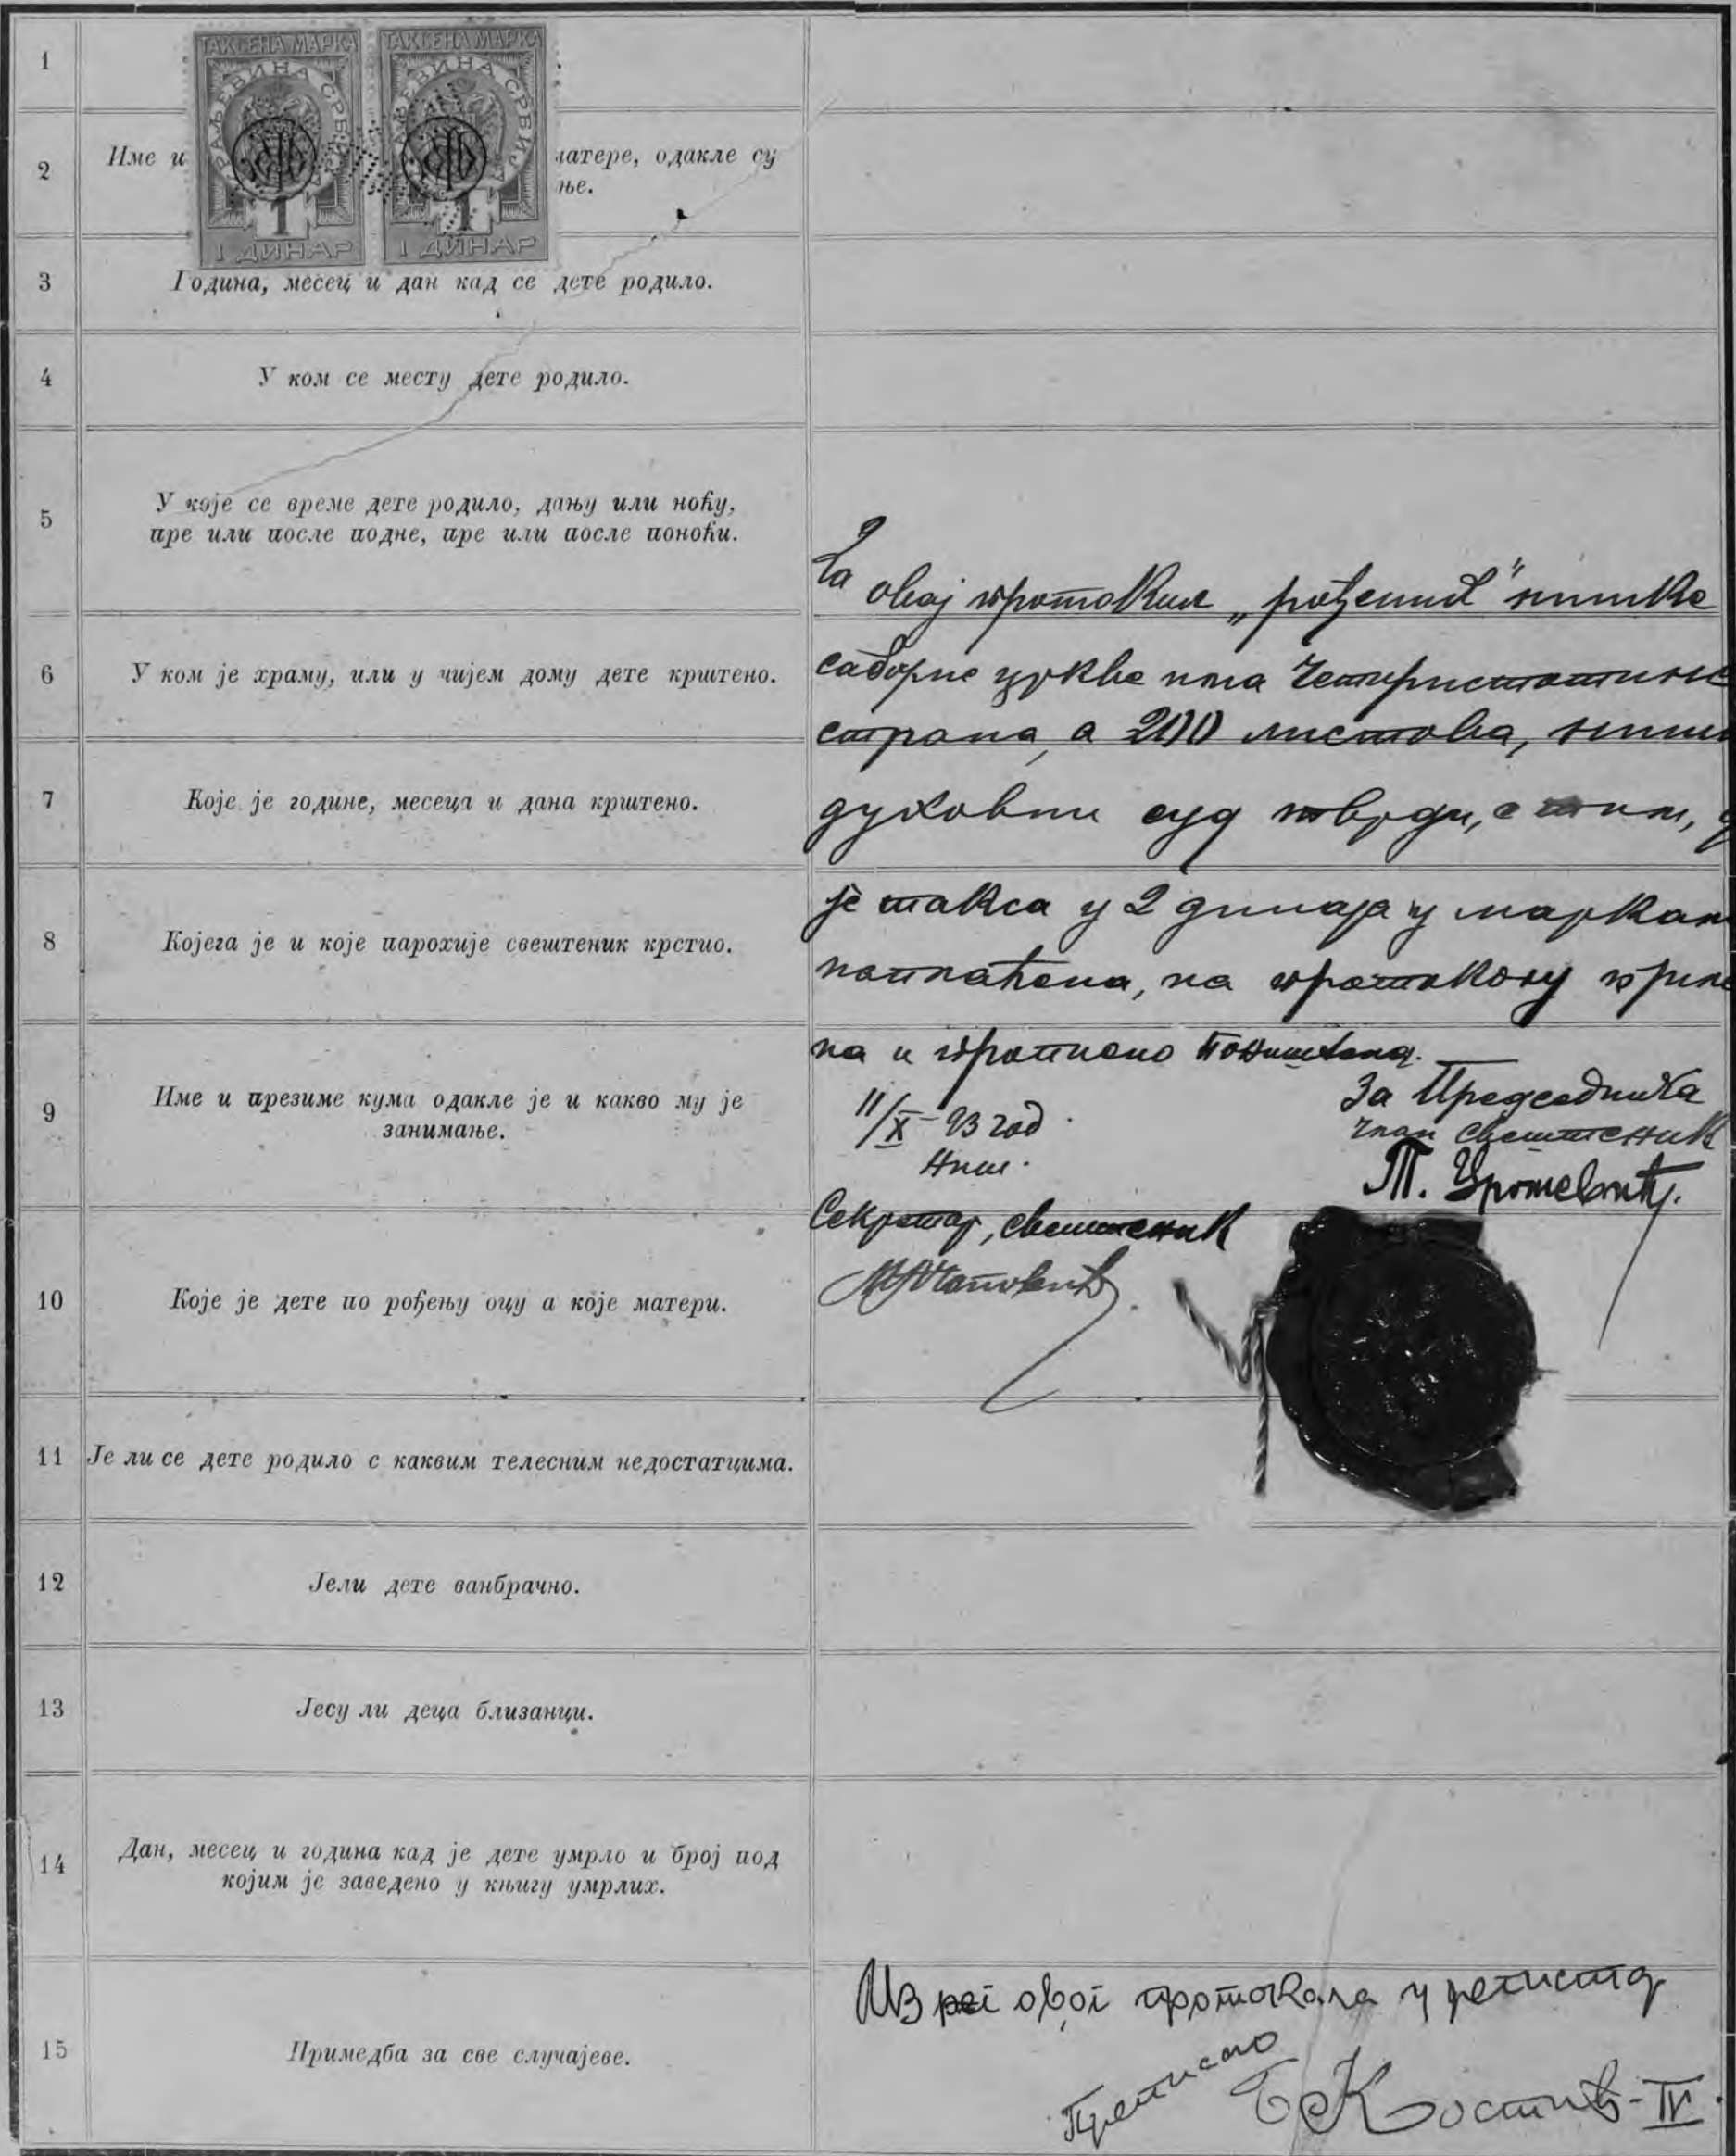 1
ТАКСЕНА МАРКА ТАКСЕНА МАРКА
КРАЉЕВИНА СРБИЈА
1 1
1 ДИНАР 1 ДИНАР
2 Име и матере, одакле су
ње.
3 Година, месец и дан кад се дете родило.
4 У ком се месту дете родило.
5 У које се време дете родило, дању или ноћу,
пре или после подне, пре или после поноћи.
6 У ком је храму, или у чијем дому дете крштено.
7 Које је године, месеца и дана крштено.
8 Којега је и које парохије свештеник крстио.
9 Име и презиме кума одакле је и какво му је
занимање.
10 Које је дете по рођењу оцу а које матери.
11 Је ли се дете родило с каквим телесним недостатцима.
12 Јели дете ванбрачно.
13 Јесу ли деца близанци.
14 Дан, месец и година кад је дете умрло и број под
којим је заведено у књигу умрлих.
15 Примедба за све случајеве.
Да овај протокол „рођених" нишке
саборне цркве има четиристотине
страна, а 200 листова, нишки
духовни суд тврди, с тим, да
је такса у 2 динара у маркама
наплаћена, на протоколу прилепљена
на и прописно поништена.
11/X - 93 год.
Ниш.
За Председника
члан свештеник
Т. Урошевић.
Секретар, свештеник
Из овог протокола у регистар
Преписао
Костић - IV.